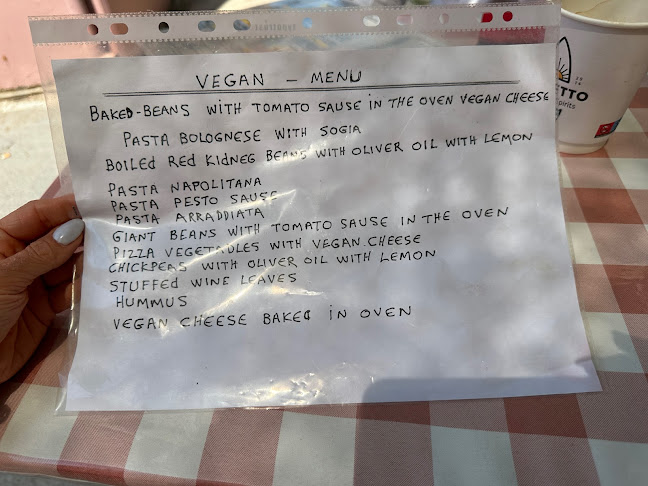 VEGAN - MENU
BAKED-BEANS WITH TOMATO SAUSE IN THE OVEN VEGAN CHEESE
PASTA BOLOGNESE WITH SOGIA
BOILED RED KIDNEG BEANS WITH OLIVER OIL WITH LEMON
PASTA NAPOLITANA
PASTA PESTO SAUSE
PASTA ARRADDIATA
GIANT BEANS WITH TOMATO SAUSE IN THE OVEN
PIZZA VEGETABLES WITH VEGAN CHEESE
CHICKPEAS WITH OLIVER OIL WITH LEMON
STUFFED WINE LEAVES
HUMMUS
VEGAN CHEESE BAKED IN OVEN
TTO
pirits